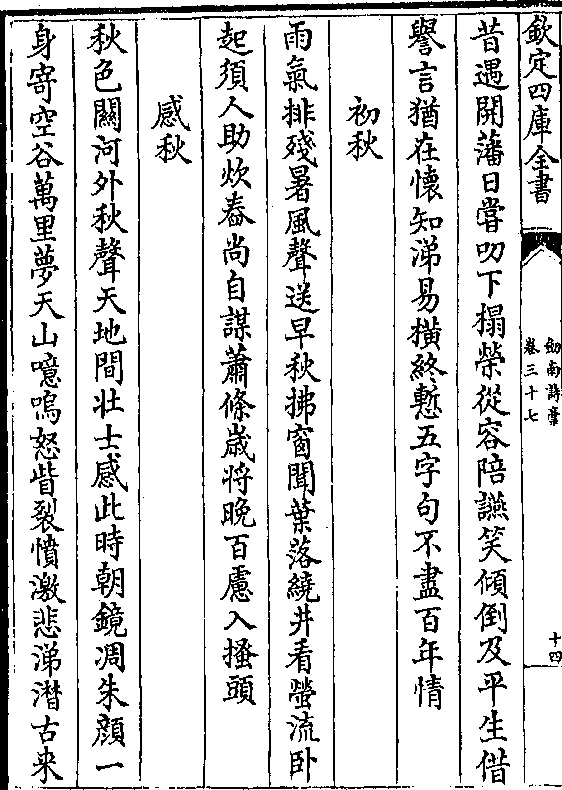 欽定四庫全書
劒南詩藁
卷三十七
十四
昔遇開藩日嘗叨下榻榮從容陪讌笑傾倒及平生借
譽言猶在懷知涕易橫終慙五字句不盡百年情
初秋
雨氣排殘暑風聲送早秋拂窗聞葉落繞井看螢流卧
起須人助炊舂尚自謀蕭條歳将晚百慮入搔頭
感秋
秋色闗河外秋聲天地間壮士感此時朝鏡凋朱顔一
身寄空谷萬里夢天山噫嗚怒眥裂憤激悲涕潜古来